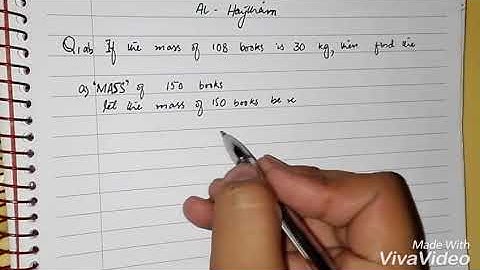 AL - Haytham
Q1ab If the mass of 108 books is 30 kg, then find the
a) "MASS" of 150 books
let the mass of 150 books be x
Made With
VivaVideo